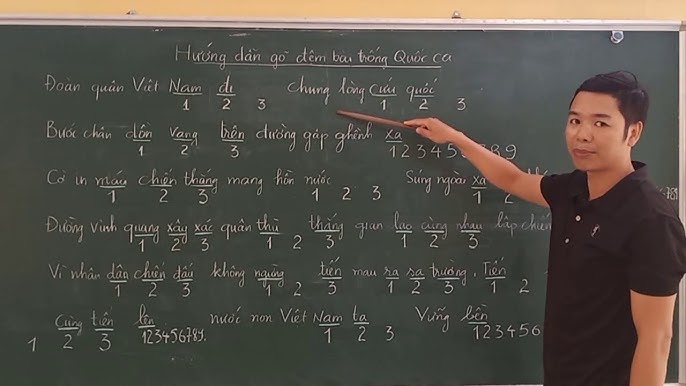 Hướng dẫn gõ đệm bài trống Quốc ca
Đoàn quân Việt Nam đi Chung lòng cứu quốc
1 2 3 1 2 3
Bước chân dồn vang trên đường gập ghềnh xa
1 2 3 1 2 3 4 5 6 7 8 9
Cờ in máu chiến thắng mang hồn nước 1 2 3 Súng ngoài xa
1 2 3 1 2 789
Đường vinh quang xây xác quân thù thắng gian lao cùng nhau lập chiến
1 2 3 1 2 3 1 2 3
Vì nhân dân chiến đấu không ngừng tiến mau ra sa trường, Tiến
1 2 3 1 2 3 1 2 3 1 2
Cùng tiến lên nước non Việt Nam ta Vững bền
1 2 3 123456789. 1 2 3 123456